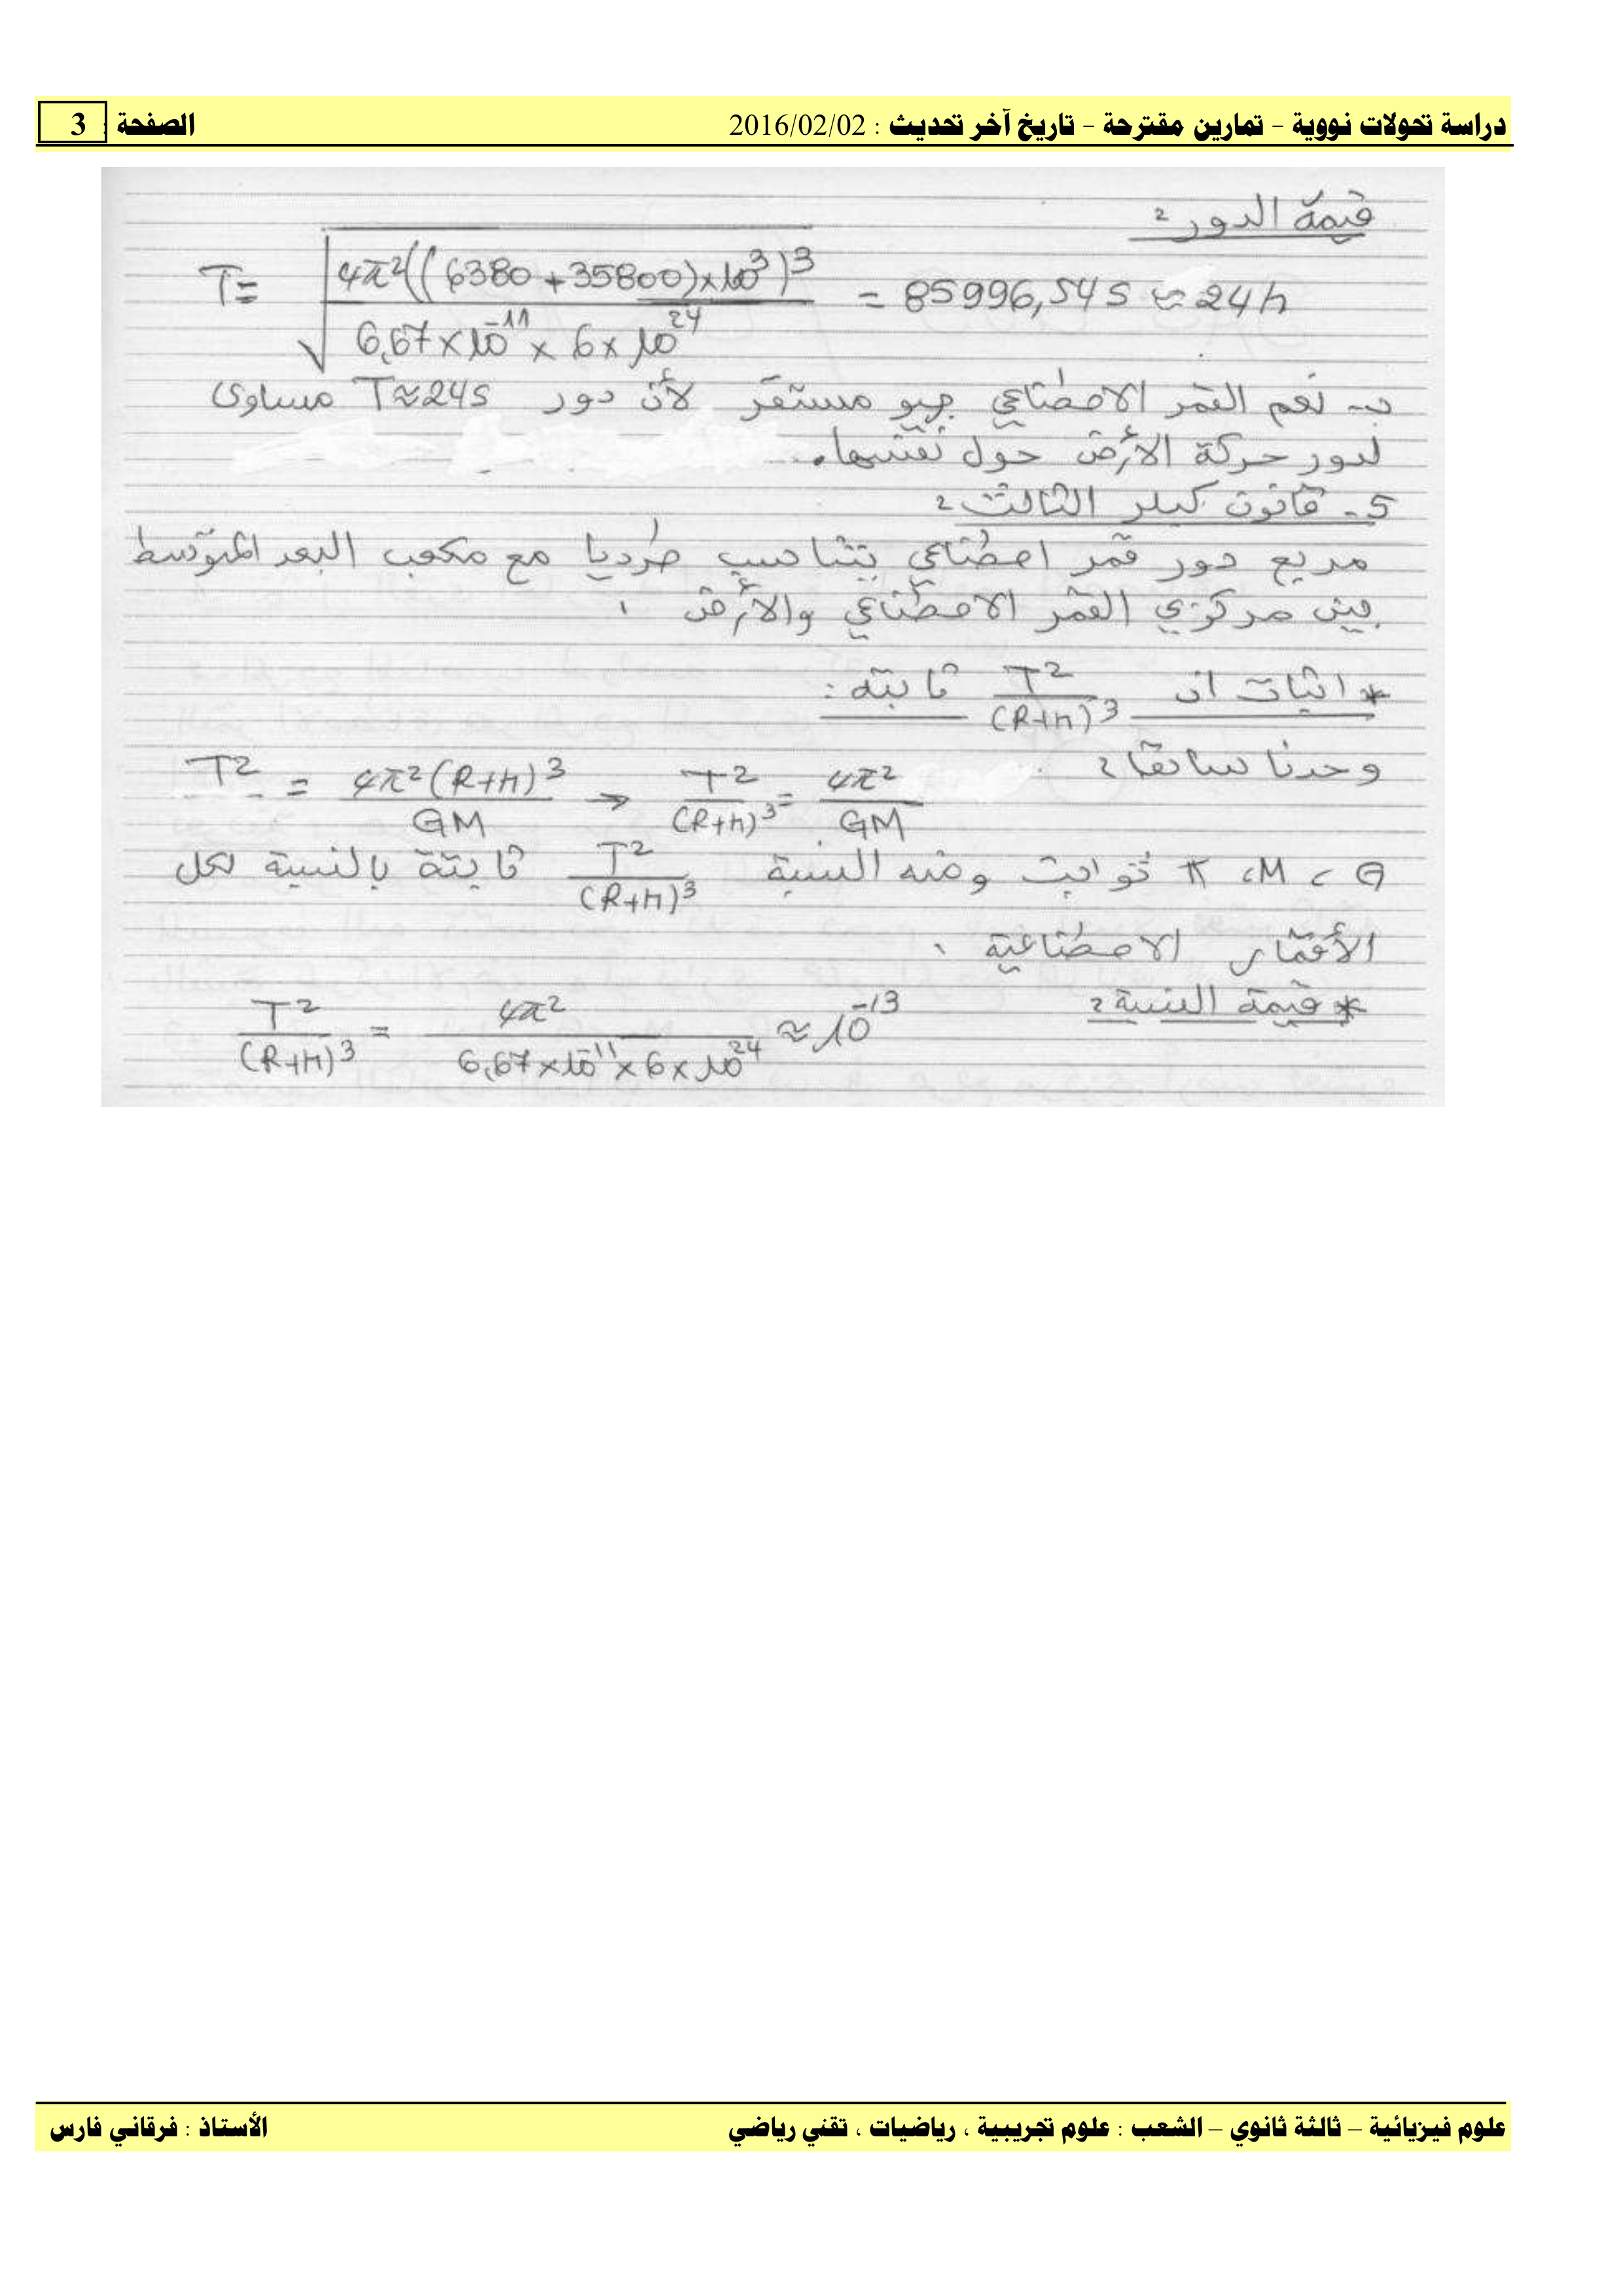 دراسة تحولات نووية – تمارين مقترحة – تاريخ آخر تحديث : 2016/02/02 الصفحة : 3
قيمة الدور :
T = √(4π²((6380+35800)×10³)³ / 6,67×10⁻¹¹ × 6×10²⁴) = 85996,54 s ≈ 24h
ب- نعم القمر الاصطناعي جيو مستقر لأن دور T≈24s مساوي
لدور حركة الأرض حول نفسها.
5- قانون كبلر الثالث :
مربع دور قمر اصطناعي يتناسب طرديا مع مكعب البعد المتوسط
بين مركزي القمر الاصطناعي والأرض .
* اثبات ان T²/(R+h)³ ثابتة :
وجدنا سابقا : T² = 4π²(R+h)³/GM → T²/(R+h)³ = 4π²/GM
G ، M ، π ثوابت ومنه النسبة T²/(R+h)³ ثابتة بالنسبة لكل
الأقمار الاصطناعية .
* قيمة النسبة : T²/(R+h)³ = 4π²/6,67×10⁻¹¹×6×10²⁴ ≈ 10⁻¹³
علوم فيزيائية – ثالثة ثانوي – الشعب : علوم تجريبية ، رياضيات ، تقني رياضي الأستاذ : فرقاني فارس